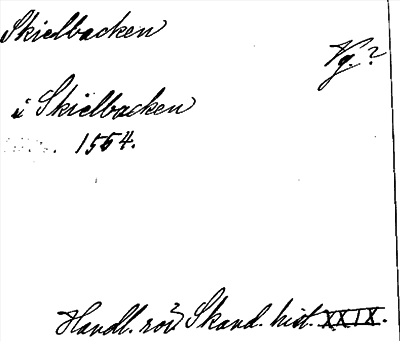 Skielbacken
Vg.?
i Skielbacken
1564.
Handl. rör Skand. hist. XXIX.